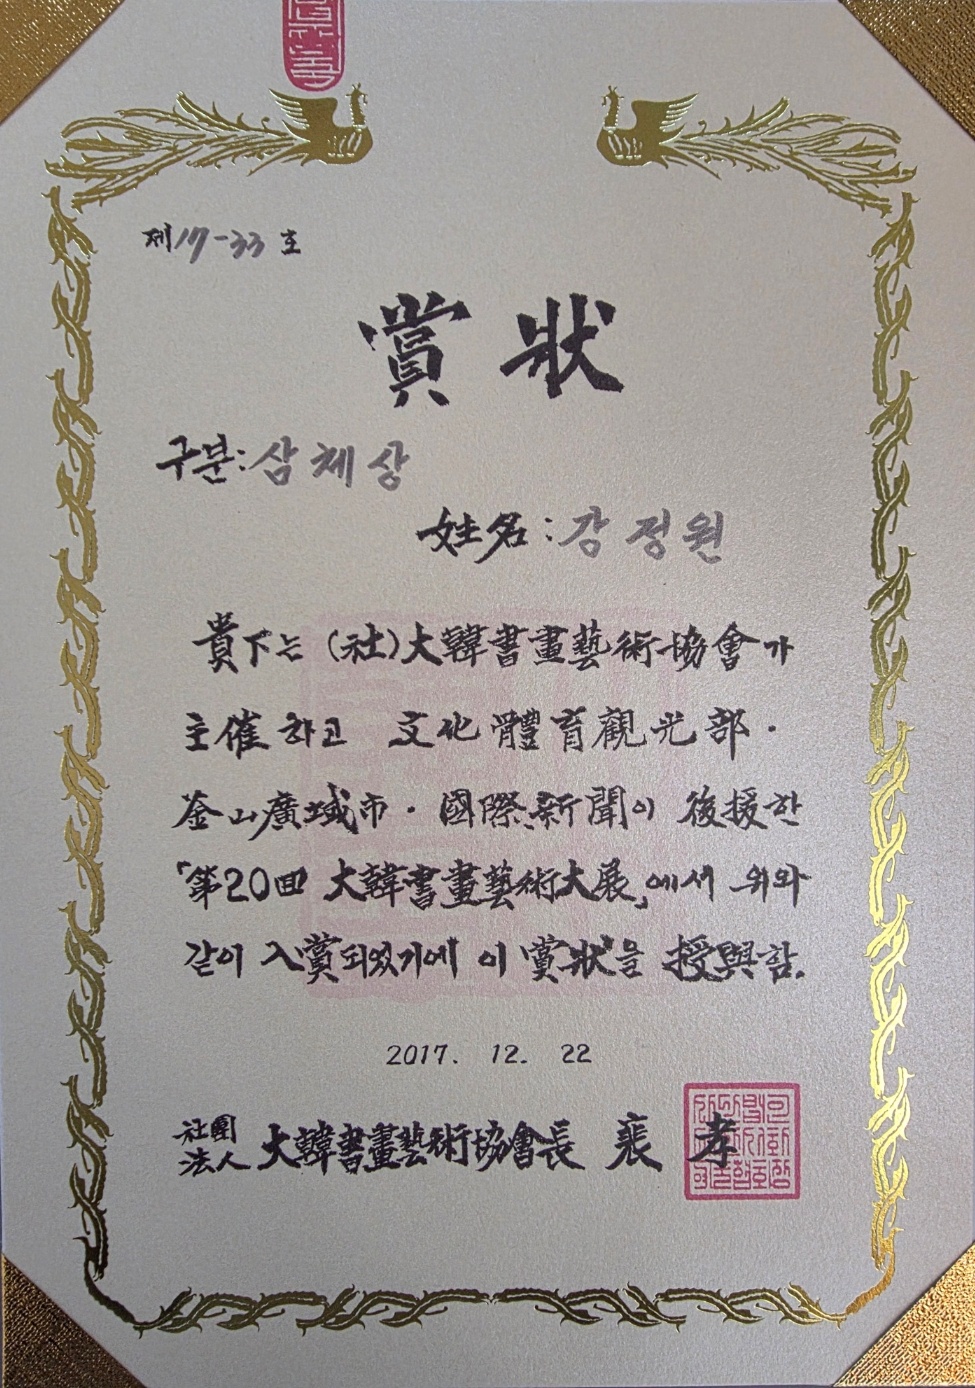 제17-33호
賞狀
구분:삼체상
姓名:강정원
貴下는 (社)大韓書畫藝術協會가
主催하고 文化體育觀光部·
釜山廣域市·國際新聞이 後援한
「第20回 大韓書畫藝術大展」에서 위와
같이 入賞되었기에 이 賞狀을 授與함.
2017. 12. 22
社團
法人 大韓書畫藝術協會長 裵 孝